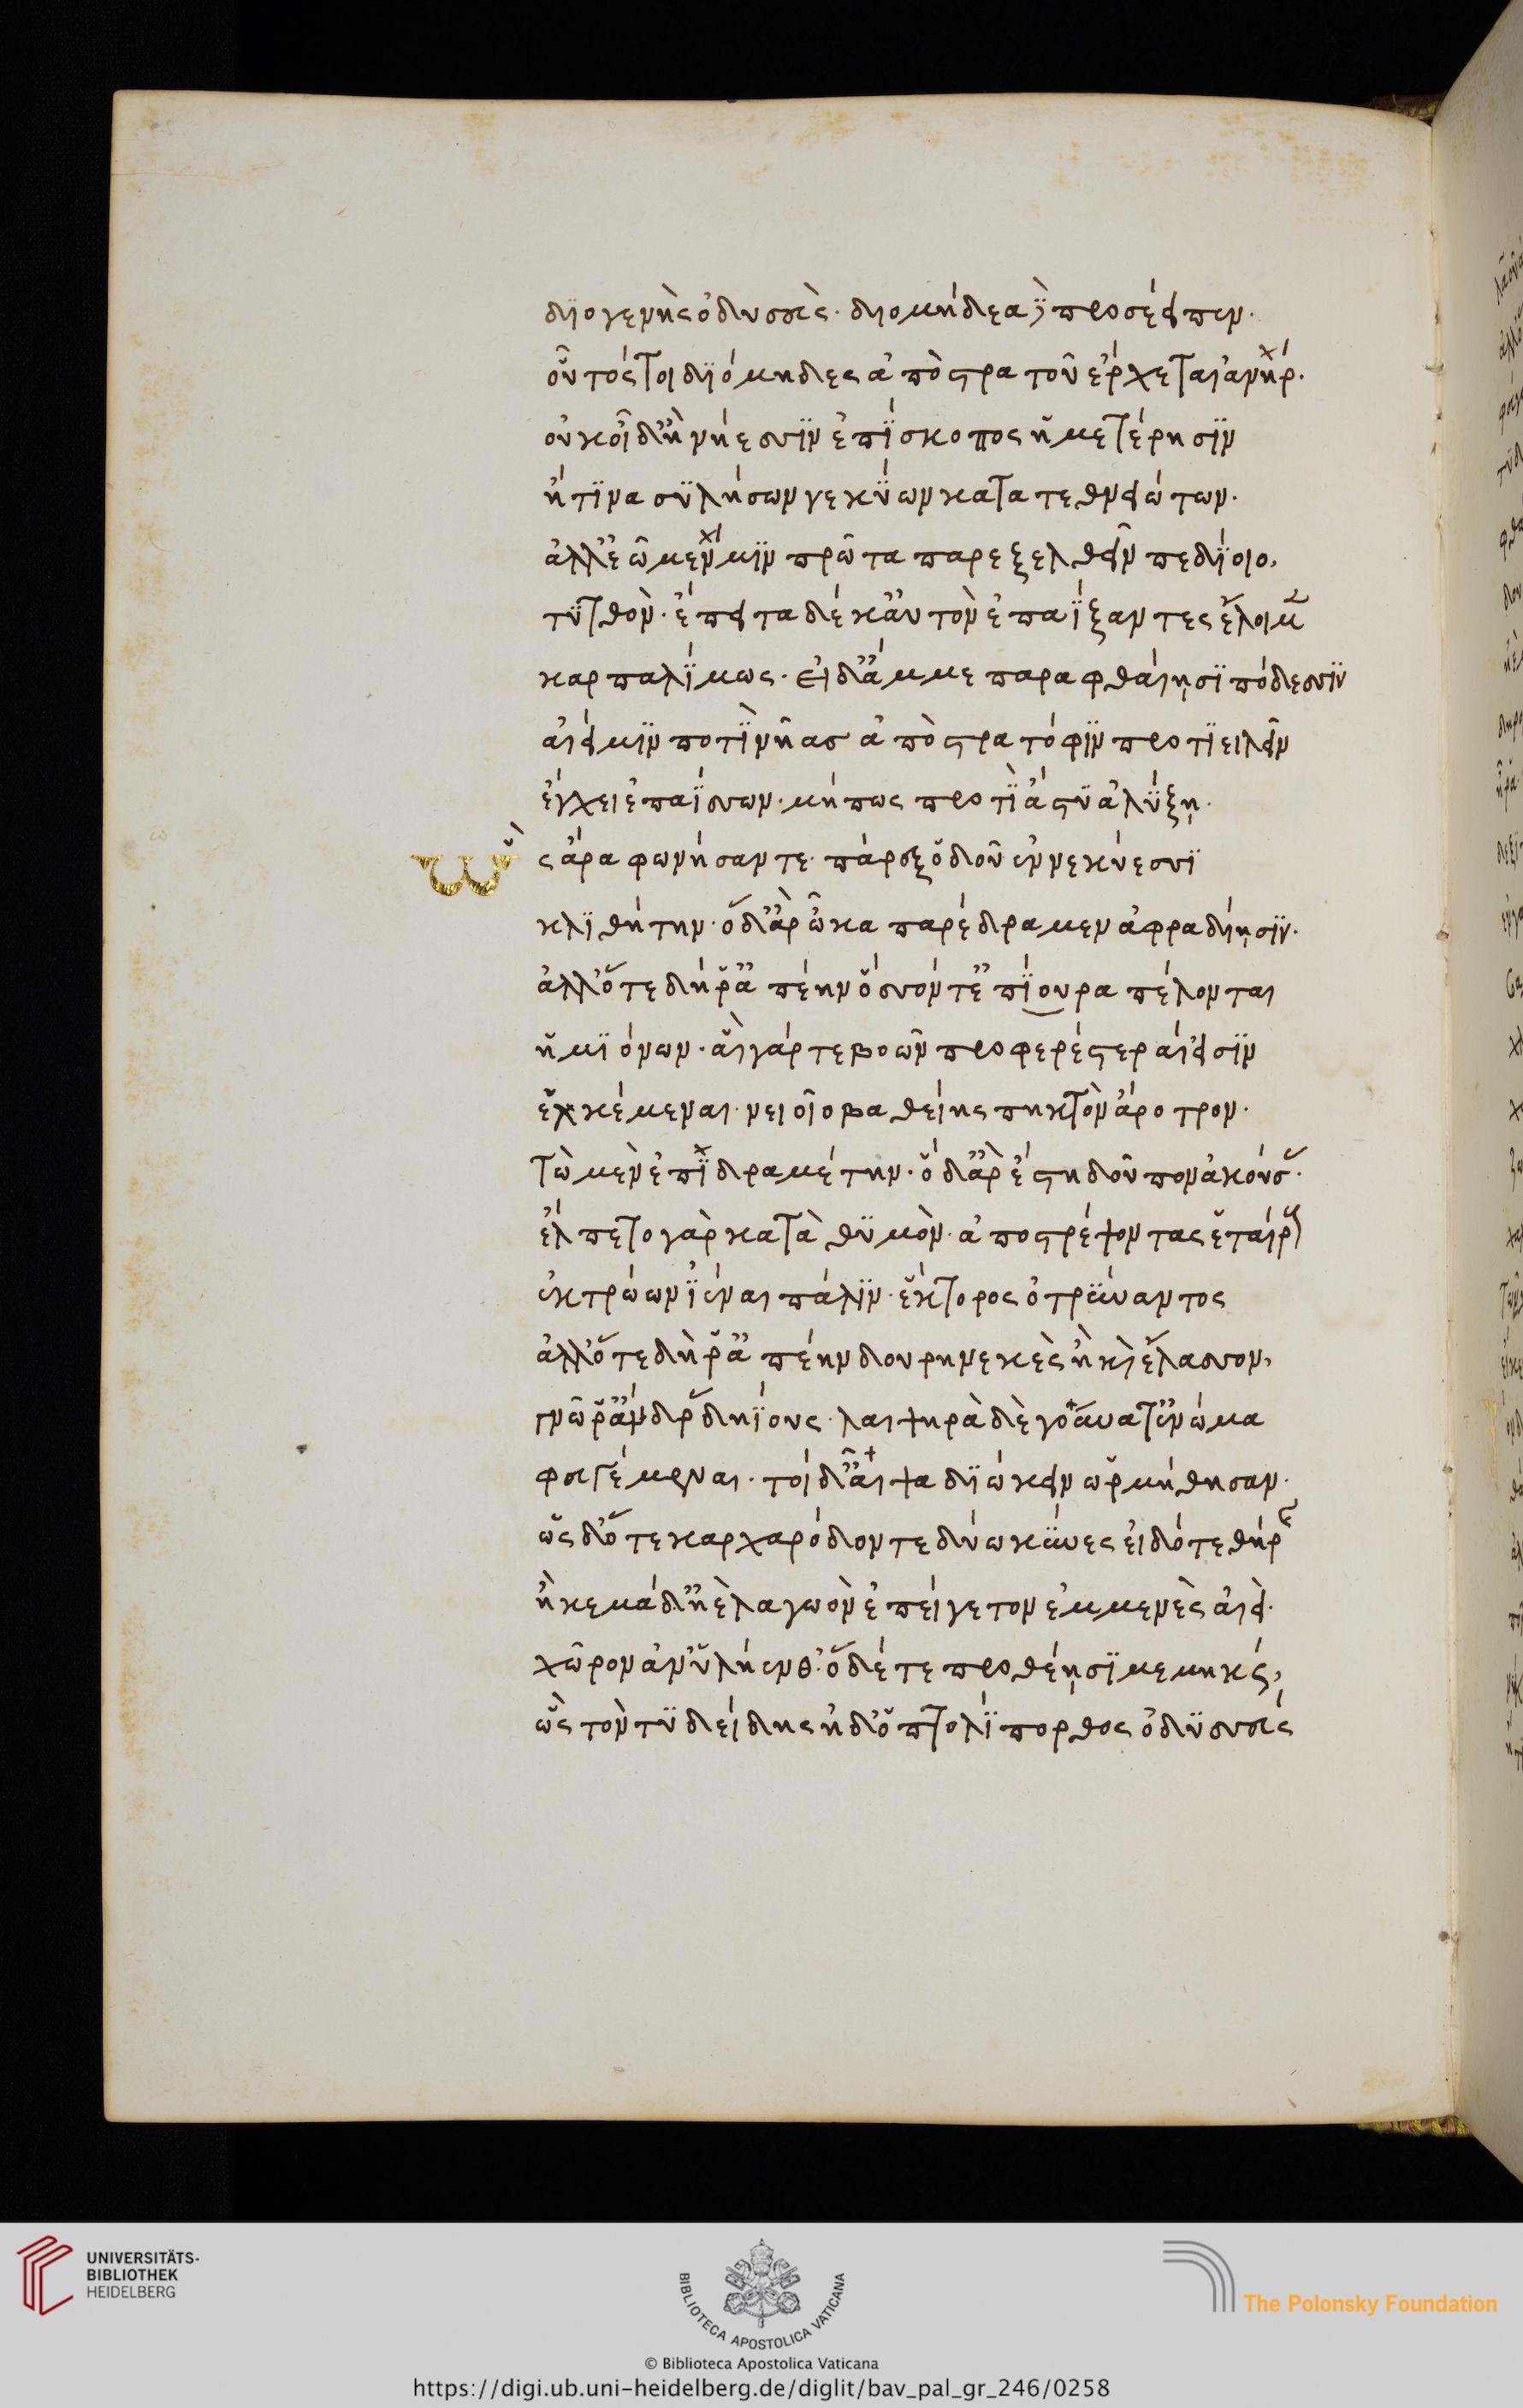 διογενὴς ὀδυσσεὺς· διομήδεα δὲ προσέειπεν·
οὗτός τοι διόμηδες ἀπὸ στρατοῦ ἔρχεται ἀνήρ·
οὐκ οἶδ᾽ ἢ νήεσσιν ἐπίσκοπος ἡμετέρησιν
ἤ τινα συλήσων γε κύων κατατεθνειώτων·
ἀλλ᾽ ἐῶμέν μιν πρῶτα παρεξελθεῖν πεδίοιο,
τυτθόν· ἔπειτα δέ κ᾽ αὐτὸν ἐπαΐξαντες ἕλοιμεν
καρπαλίμως· εἰ δ᾽ ἄμμε παραφθαίησι πόδεσσιν
αἰεί μιν ποτὶ νῆας ἀπὸ στρατόφιν προτιειλεῖν
ἔγχει ἐπαΐσσων· μή πως προτὶ ἄστυ ἀλύξῃ·
ὣς ἄρα φωνήσαντε· πάρεξ ὁδοῦ ἐν νεκύεσσι
κλινθήτην· ὁ δ᾽ ἄρ᾽ ὦκα παρέδραμεν ἀφραδίῃσιν·
ἀλλ᾽ ὅτε δή ῥ᾽ ἀπέην ὅσσόν τ᾽ ἐπίουρα πέλονται
ἡμιόνων· αἱ γάρ τε βοῶν προφερέστεραί εἰσιν
ἑλκέμεναι· νειοῖο βαθείης πηκτὸν ἄροτρον·
τὼ μὲν ἐπιδραμέτην· ὁ δ᾽ ἄρ᾽ ἔστη δοῦπον ἀκούσας·
ἔλπετο γὰρ κατὰ θυμὸν· ἀποστρέψοντας ἑταίρους
ἐκ τρώων ἰέναι πάλιν· ἕκτορος ὀτρύναντος
ἀλλ᾽ ὅτε δή ῥ᾽ ἄπεην δουρηνεκὲς ἢ καὶ ἔλασσον,
γνῶ ῥ᾽ ἄνδρας δηΐους· λαιψηρὰ δὲ γούνατ᾽ ἐνώμα
φευγέμεναι· τοὶ δ᾽ αἶψα διώκειν ὡρμήθησαν·
ὡς δ᾽ ὅτε καρχαρόδοντε δύω κύνες εἰδότε θήρης
ἢ κεμάδ᾽ ἠὲ λαγωὸν ἐπείγετον ἐμμενὲς αἰεὶ·
χῶρον ἀν᾽ ὑλήενθ᾽· ὁ δέ τε προθέῃσι μεμηκώς,
ὣς τὸν τυδείδης ἠδ᾽ ὁ πτολίπορθος ὀδυσσεύς
UNIVERSITÄTS-
BIBLIOTHEK
HEIDELBERG
BIBLIOTECA APOSTOLICA VATICANA
The Polonsky Foundation
© Biblioteca Apostolica Vaticana
https://digi.ub.uni-heidelberg.de/diglit/bav_pal_gr_246/0258